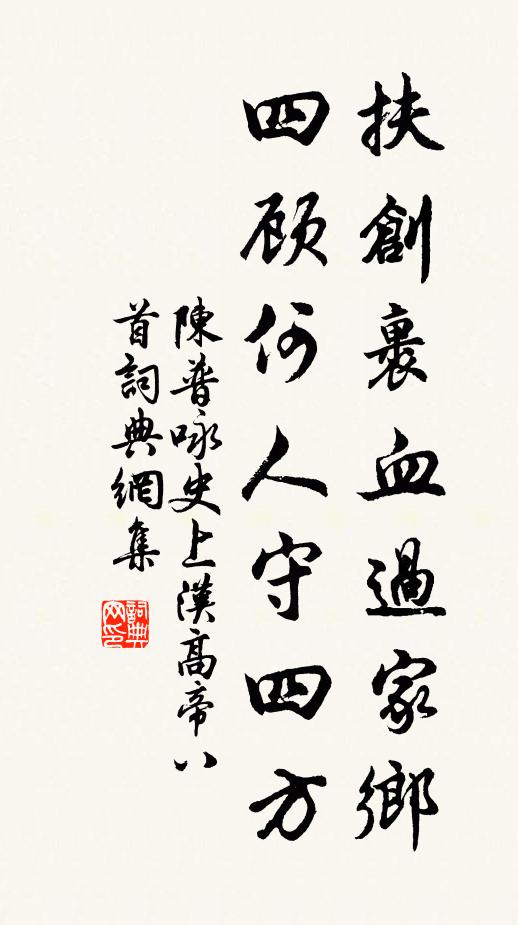 扶創裹血過家鄉
四顾何人守四方
陳普咏史上漢高帝八
首詞典網集
詞典
网印